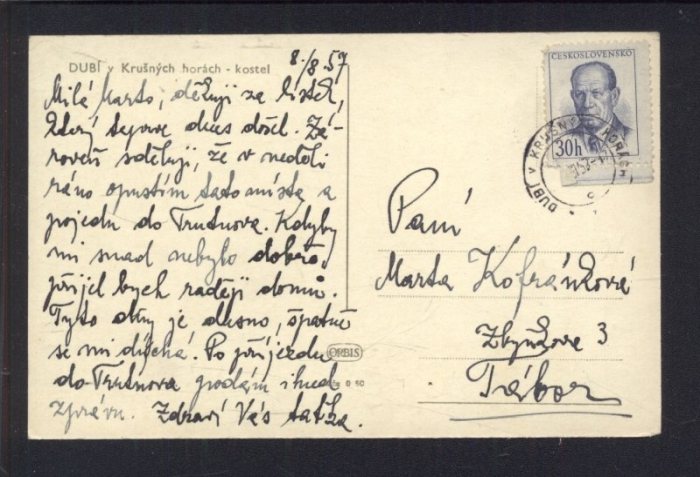 DUBÍ v Krušných horách - kostel
8./8.57
Milá Marto, děkuji za lístek,
který teprve dnes došel. Zá-
roveň sděluji, že v neděli
ráno opustím tato místa a
pojedu do Trutnova. Kdyby
mi snad nebylo dobře,
přijel bych raději domů.
Tyto dny je dusno, špatně
se mi dýchá. Po příjezdu
do Trutnova podám ihned
zprávu. Zdraví Vás taťka.
ORBIS
ČESKOSLOVENSKO
30h
DUBÍ V KRUŠNÝCH HORÁCH
Paní
Marta Kofránková
3
Tábor